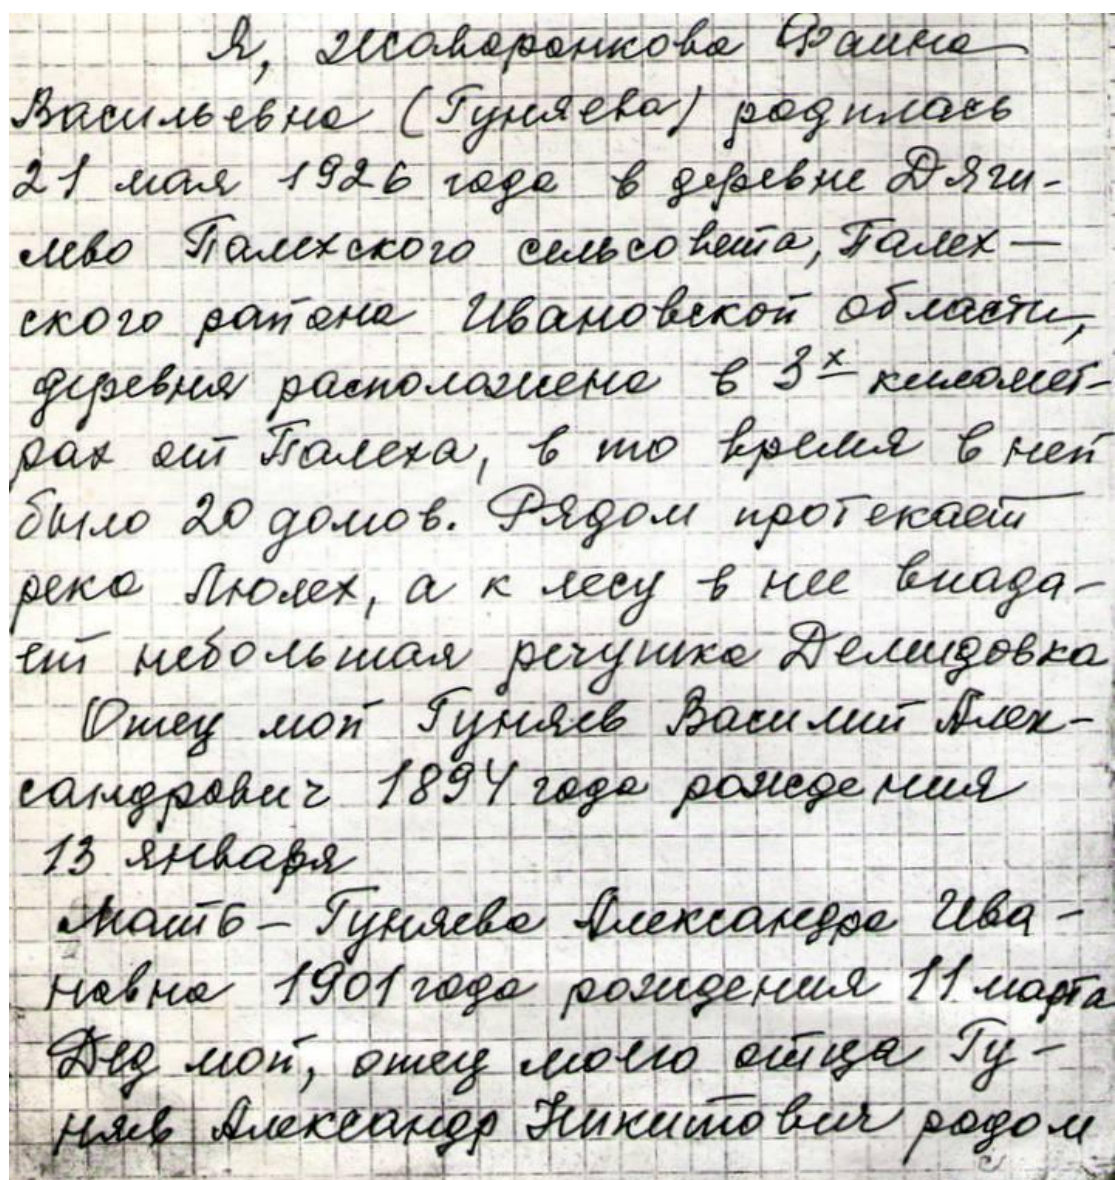 Я, Жаворонкова Фаина
Васильевна (Гуняева) родилась
21 мая 1926 года в деревне Дяги-
лево Палехского сельсовета, Палех-
ского района Ивановской области,
деревня расположена в 3х километ-
рах от Палеха, в то время в ней
было 20 домов. Рядом протекает
река Люлех, а к лесу в нее впада-
ет небольшая речушка Демидовка
Отец мой Гуняев Василий Алек-
сандрович 1894 года рождения
13 января
Мать - Гуняева Александра Ива-
новна 1901 года рождения 11 марта
Дед мой, отец моего отца Гу-
няев Александр Никитович родом